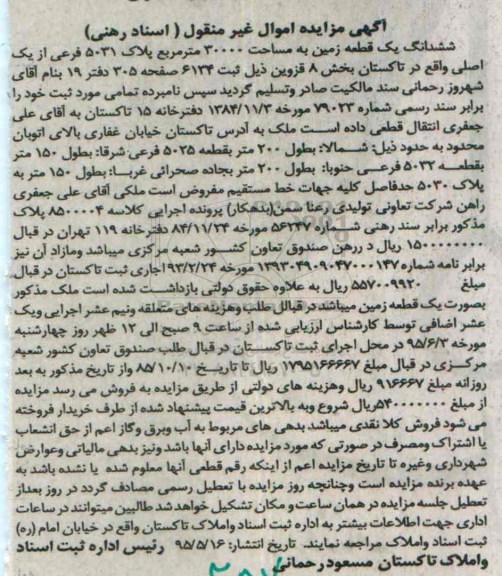 آگهی مزایده اموال غیر منقول ( اسناد رهنی)
ششدانگ یک قطعه زمین به مساحت ۳۰۰۰۰ مترمربع پلاک ۵۰۳۱ فرعی از یک
اصلی واقع در تاکستان بخش ۸ قزوین ذیل ثبت ۶۱۳۴ صفحه ۳۰۵ دفتر ۱۹ بنام آقای
شهروز رحمانی سند مالکیت صادر وتسلیم گردید سپس نامبرده تمامی مورد ثبت خود را
برابر سند رسمی شماره ۷۹۰۲۳ مورخه ۱۳۸۴/۱۱/۳ دفترخانه ۱۵ تاکستان به آقای علی
جعفری انتقال قطعی داده است ملک به آدرس تاکستان خیابان غفاری بالای اتوبان
محدود به حدود ذیل: شمالا: بطول ۲۰۰ متر بقطعه ۵۰۲۵ فرعی شرقا: بطول ۱۵۰ متر
بقطعه ۵۰۳۲ فرعی جنوبا: بطول ۲۰۰ متر بجاده صحرائی غربا: بطول ۱۵۰ متر به
پلاک ۵۰۳۰ حدفاصل کلیه جهات خط مستقیم مفروض است ملکی آقای علی جعفری
راهن شرکت تعاونی تولیدی رعنا سمن(بدهکار) پرونده اجرایی کلاسه ۸۵۰۰۰۰۴ پلاک
مذکور برابر سند رهنی شماره ۵۶۲۴۷ مورخه ۸۴/۱۱/۲۴ دفترخانه ۱۱۹ تهران در قبال
۱۵۰۰۰۰۰۰۰۰ ریال د ررهن صندوق تعاون کشور شعبه مرکزی میباشد ومازاد آن نیز
برابر نامه شماره ۱۳۹۳۰۴۹۰۹۰۴۷۰۰۰۱۴۷ مورخه ۹۳/۲/۲۴ اجاری ثبت تاکستان در قبال
مبلغ ۵۵۷۰۰۹۹۲۰ ریال به علاوه حقوق دولتی بازداشت شده است ملک مذکور
بصورت یک قطعه زمین میباشد در قبالل طلب وهزینه های متعلقه ونیم عشر اجرایی ویک
عشر اضافی توسط کارشناس ارزیابی شده از ساعت ۹ صبح الی ۱۲ ظهر روز چهارشنبه
مورخه ۹۵/۶/۳ در محل اجرای ثبت تاکستان در قبال طلب صندوق تعاون کشور شعبه
مرکزی در قبال مبلغ ۱۷۹۵۱۶۶۶۶۷ ریال تا تاریخ ۸۵/۱۰/۱۰ واز تاریخ مذکور به بعد
روزانه مبلغ ۹۱۶۶۶۷ ریال وهزینه های دولتی از طریق مزایده به فروش می رسد مزایده
از مبلغ ۵۴۰۰۰۰۰۰۰۰ریال شروع وبه بالاترین قیمت پیشنهاد شده از طرف خریدار فروخته
می شود فروش کلا نقدی میباشد بدهی های مربوط به آب وبرق وگاز اعم از حق انشعاب
یا اشتراک ومصرف در صورتی که مورد مزایده دارای آنها باشد ونیز بدهی مالیاتی وعوارض
شهرداری وغیره تا تاریخ مزایده اعم از اینکه رقم قطعی آنها معلوم شده یا نشده باشد به
عهده برنده مزایده است وچنانچه روز مزایده با تعطیل رسمی مصادف گردد در روز بعداز
تعطیل جلسه مزایده در همان ساعت و مکان تشکیل خواهد شد طالبین میتوانند در ساعات
اداری جهت اطلاعات بیشتر به اداره ثبت اسناد واملاک تاکستان واقع در خیابان امام (ره)
ثبت اسناد واملاک مراجعه نمایند. تاریخ انتشار: ۹۵/۵/۱۶ رئیس اداره ثبت اسناد
واملاک تاکستان مسعود رحمانی